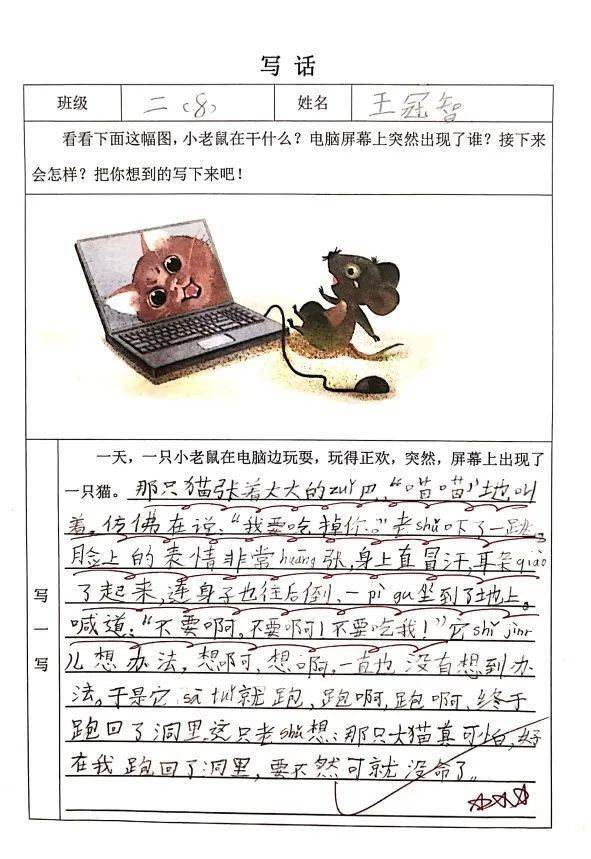 写 话
班级 二(8) 姓名 王冠智
看看下面这幅图，小老鼠在干什么？电脑屏幕上突然出现了谁？接下来
会怎样？把你想到的写下来吧！
一天，一只小老鼠在电脑边玩耍，玩得正欢，突然，屏幕上出现了
一只猫。那只猫张着大大的zuǐ巴，“喵喵”地叫
着。仿佛在说：“我要吃掉你。”老shǔ吓了一跳，
脸上的表情非常huāng张，身上直冒汗，耳朵qiào
了起来，连身子也往后倒，一pì gu坐到了地上。
喊道：“不要啊，不要啊！不要吃我！”它shǐ jìnr
儿想办法，想啊，想啊，一直也没有想到办
法。于是它sā tuǐ就跑，跑啊，跑啊，终于
跑回了洞里。这只老shǔ想：那只大猫真可怕，好
在我跑回了洞里，要不然可就没命了。
写一写